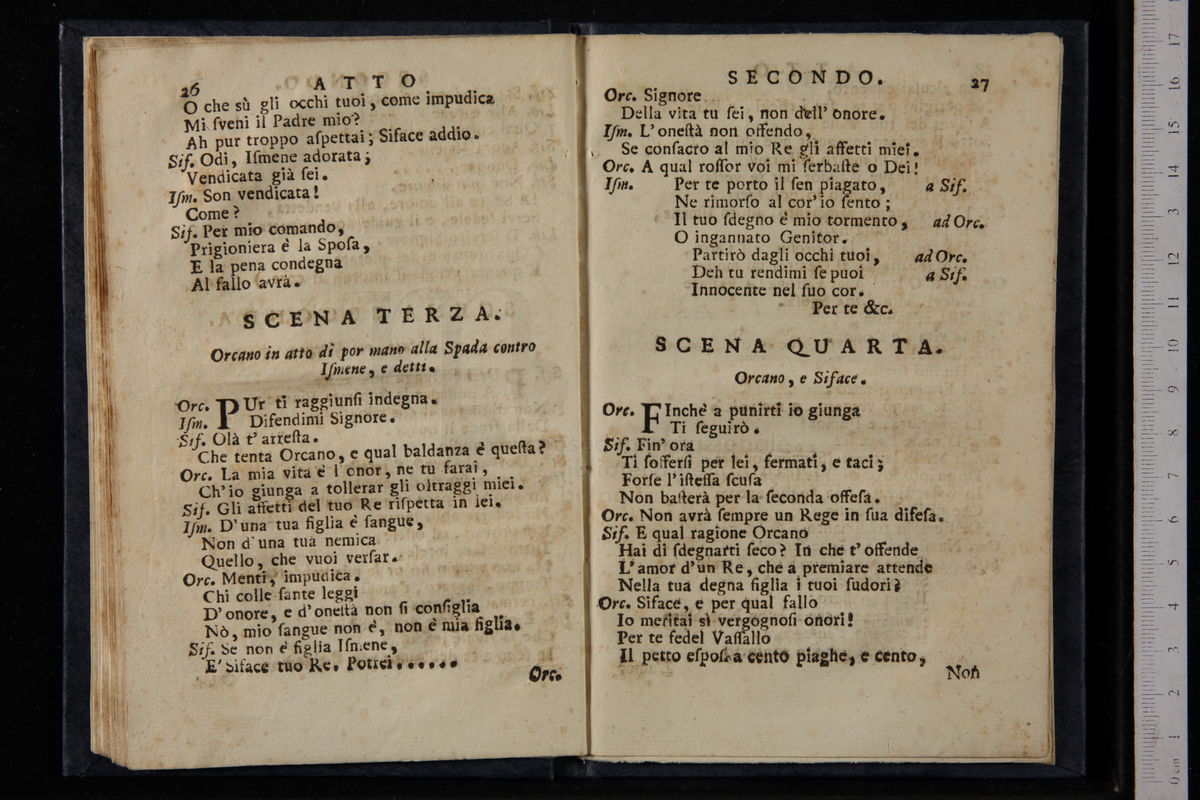 26 ATTO
O che sù gli occhi tuoi, come impudica
Mi ſveni il Padre mio?
Ah pur troppo aſpettai; Siface addio.
Sif. Odi, Iſmene adorata;
Vendicata già ſei.
Iſm. Son vendicata!
Come?
Sif. Per mio comando,
Prigioniera è la Spoſa,
E la pena condegna
Al fallo avrà.
SCENA TERZA.
Orcano in atto di por mano alla Spada contro
Iſmene, e detti.
Orc. PUr ti raggiunſi indegna.
Iſm. Difendimi Signore.
Sif. Olà t' arreſta.
Che tenta Orcano, e qual baldanza è queſta?
Orc. La mia vita è l'onor, ne tu farai,
Ch'io giunga a tollerar gli oltraggi miei.
Sif. Gli affetti del tuo Re riſpetta in lei.
Iſm. D'una tua figlia è ſangue,
Non d'una tua nemica
Quello, che vuoi verſar.
Orc. Menti, impudica.
Chi colle ſante leggi
D'onore, e d'oneſtà non ſi conſiglia
Nò, mio ſangue non è, non è mia figlia.
Sif. Se non è figlia Iſmene,
E' Siface tuo Re. Potrei......
Orc.
SECONDO. 27
Orc. Signore
Della vita tu ſei, non dell' onore.
Iſm. L'oneſtà non offendo,
Se conſacro al mio Re gli affetti miei.
Orc. A qual roſſor voi mi ſerbaſte o Dei!
Iſm. Per te porto il ſen piagato, a Sif.
Ne rimorſo al cor' io ſento;
Il tuo ſdegno è mio tormento, ad Orc.
O ingannato Genitor.
Partirò dagli occhi tuoi, ad Orc.
Deh tu rendimi ſe puoi a Sif.
Innocente nel ſuo cor.
Per te &c.
SCENA QUARTA.
Orcano, e Siface.
Orc. FInchè a punirti io giunga
Ti ſeguirò.
Sif. Fin' ora
Ti ſofferſi per lei, fermati, e taci;
Forſe l'iſteſſa ſcuſa
Non baſterà per la ſeconda offeſa.
Orc. Non avrà ſempre un Rege in ſua difeſa.
Sif. E qual ragione Orcano
Hai di ſdegnarti ſeco? In che t'offende
L'amor d'un Re, che a premiare attende
Nella tua degna figlia i tuoi ſudori?
Orc. Siface, e per qual fallo
Io meritai sì vergognoſi onori!
Per te fedel Vaſſallo
Il petto eſpoſi a cento piaghe, e cento,
Non
0 cm 1 2 3 4 5 6 7 8 9 10 11 12 13 14 15 16 17